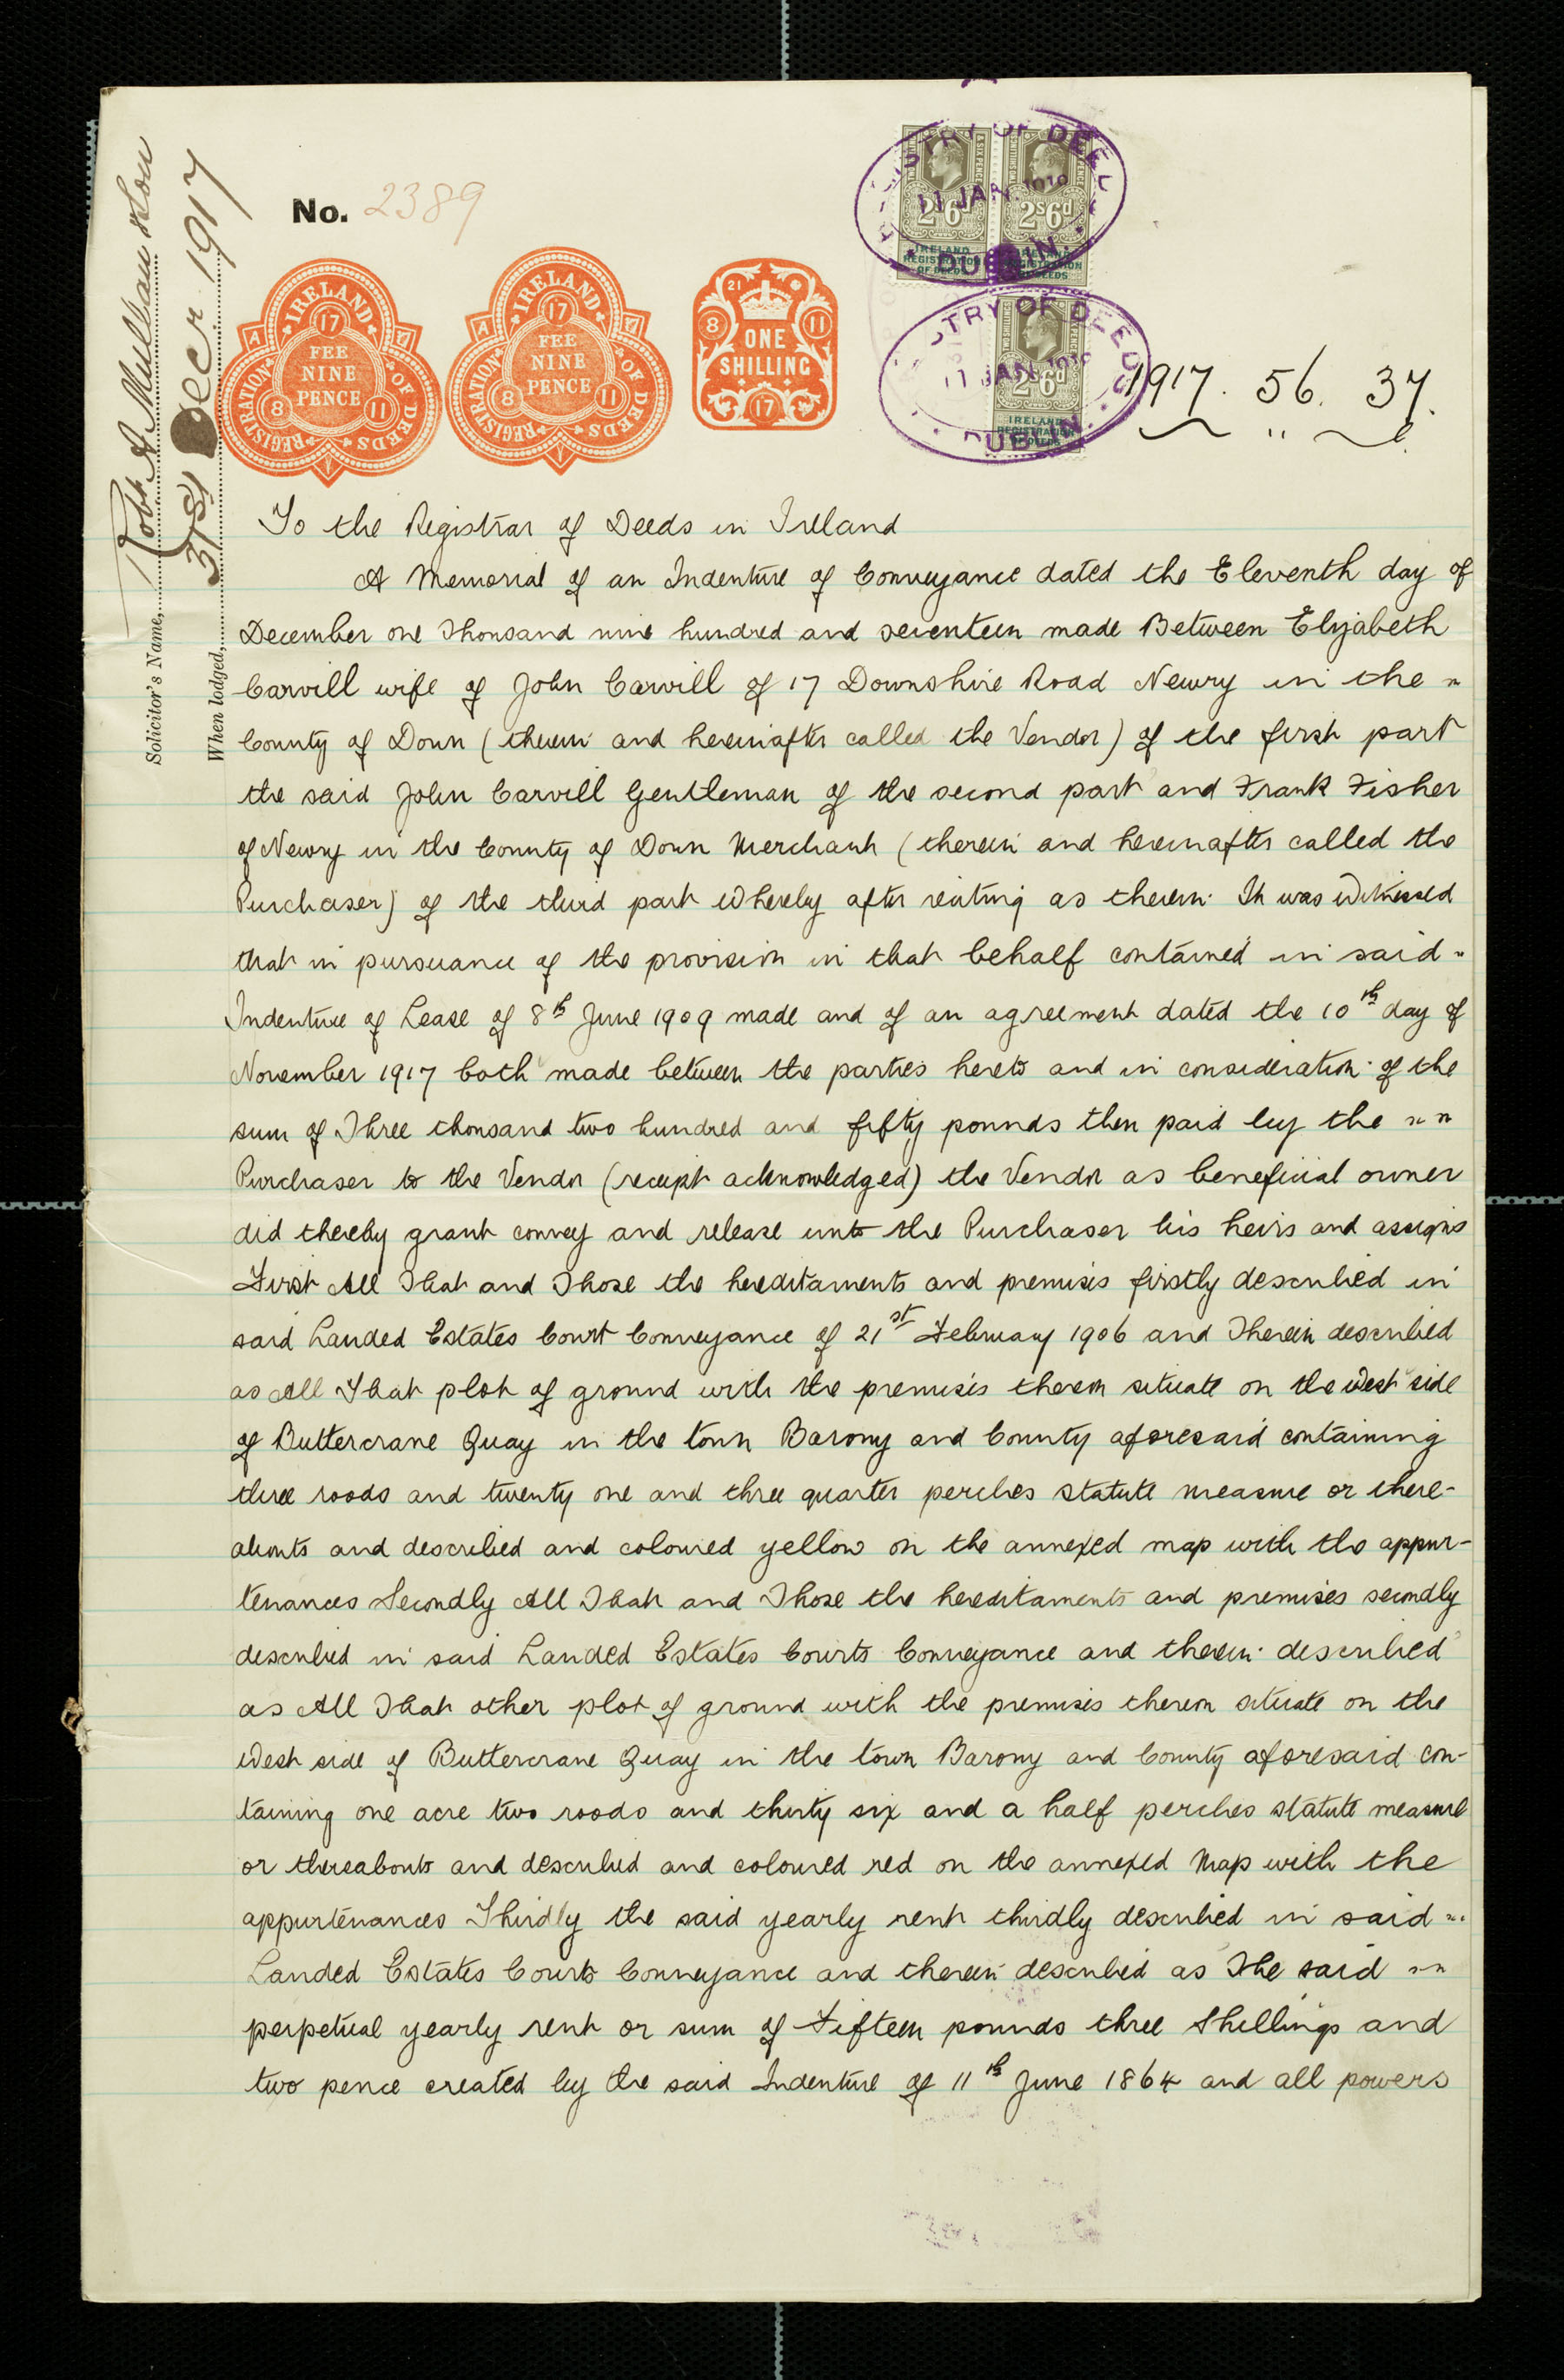 Solicitor's Name, Robt A Mullan & Son
When lodged, 31st Decr. 1917
No. 2389
IRELAND
REGISTRATION OF DEEDS
17
FEE
NINE
PENCE
8 11
IRELAND
REGISTRATION OF DEEDS
17
FEE
NINE
PENCE
8 11
21
8 11
ONE
SHILLING
17
REGISTRY OF DEEDS
11 JAN. 1918
DUBLIN
2s6d 2s6d
IRELAND
REGISTRATION
OF DEEDS
IRELAND
REGISTRATION
OF DEEDS
REGISTRY OF DEEDS
11 JAN 1918
2s6d
IRELAND
REGISTRATION
OF DEEDS
DUBLIN
1917. 56. 37.
To the Registrar of Deeds in Ireland
A Memorial of an Indenture of Conveyance dated the Eleventh day of
December one thousand nine hundred and seventeen made Between Elizabeth
Carvill wife of John Carvill of 17 Downshire Road Newry in the "
County of Down (therein and hereinafter called the Vendor) of the first part
the said John Carvill Gentleman of the second part and Frank Fisher
of Newry in the County of Down Merchant (therein and hereinafter called the
Purchaser) of the third part Whereby after reciting as therein It was Witnessed
that in pursuance of the provision in that behalf contained in said "
Indenture of Lease of 8th June 1909 made and of an agreement dated the 10th day of
November 1917 both made between the parties hereto and in consideration of the
sum of Three thousand two hundred and fifty pounds then paid by the " "
Purchaser to the Vendor (receipt acknowledged) the Vendor as beneficial owner
did thereby grant convey and release unto the Purchaser his heirs and assigns
First All That and Those the hereditaments and premises firstly described in
said Landed Estates Court Conveyance of 21st February 1906 and Therein described
as All That plot of ground with the premises thereon situate on the West side
of Buttercrane Quay in the town Barony and County aforesaid containing
three roods and twenty one and three quarter perches statute measure or there-
abouts and described and coloured yellow on the annexed map with the appur-
tenances Secondly All That and Those the hereditaments and premises secondly
described in said Landed Estates Courts Conveyance and therein described
as All That other plot of ground with the premises thereon situate on the
West side of Buttercrane Quay in the town Barony and County aforesaid con-
taining one acre two roods and thirty six and a half perches statute measure
or thereabouts and described and coloured red on the annexed Map with the
appurtenances Thirdly the said yearly rent thirdly described in said "
Landed Estates Courts Conveyance and therein described as The said " "
perpetual yearly rent or sum of Fifteen pounds three Shillings and
two pence created by the said Indenture of 11th June 1864 and all powers